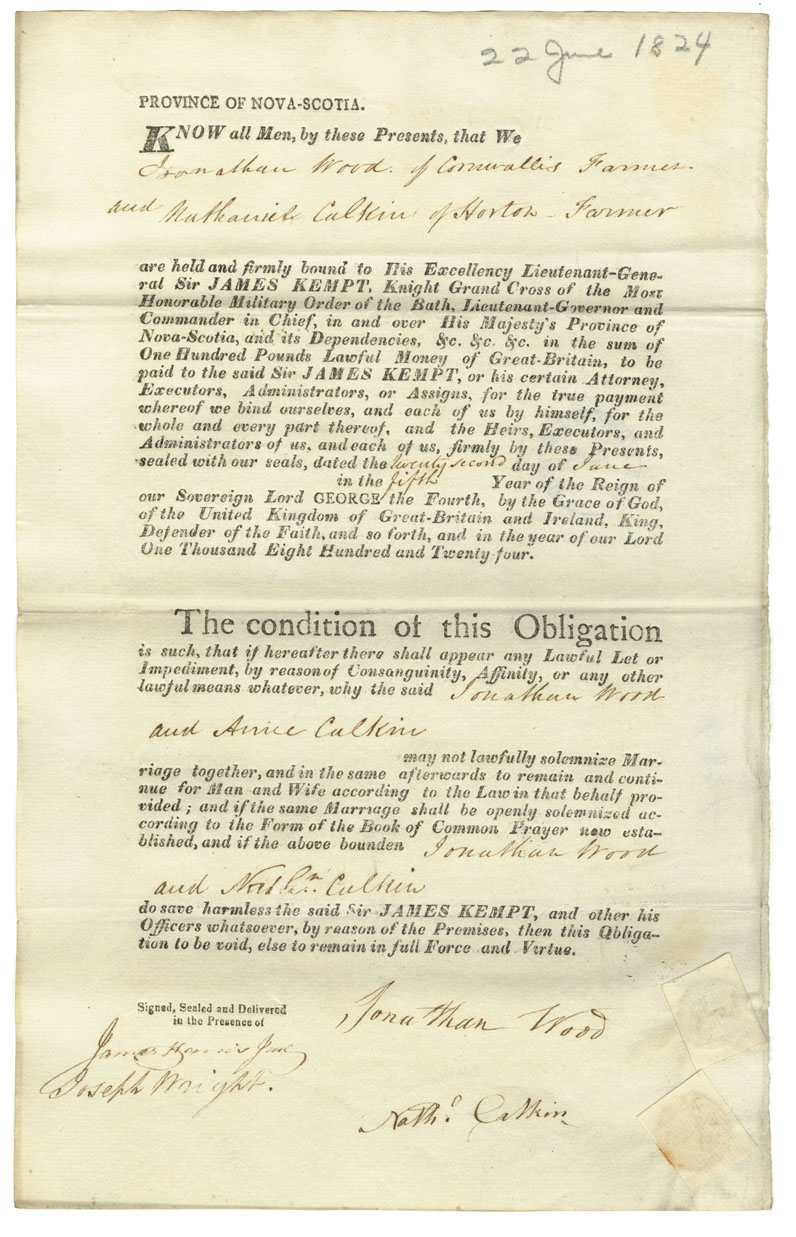 22 June 1824
PROVINCE OF NOVA-SCOTIA.
KNOW all Men, by these Presents, that We
Jonathan Wood of Cornwallis Farmer
and Nathaniel Calkin of Horton - Farmer
are held and firmly bound to His Excellency Lieutenant-Gene-
ral Sir JAMES KEMPT, Knight Grand Cross of the Most
Honorable Military Order of the Bath, Lieutenant-Governor and
Commander in Chief, in and over His Majesty's Province of
Nova-Scotia, and its Dependencies, &c. &c. &c. in the sum of
One Hundred Pounds Lawful Money of Great-Britain, to be
paid to the said Sir JAMES KEMPT, or his certain Attorney,
Executors, Administrators, or Assigns, for the true payment
whereof we bind ourselves, and each of us by himself, for the
whole and every part thereof, and the Heirs, Executors, and
Administrators of us, and each of us, firmly by these Presents,
sealed with our seals, dated the twenty second day of June
in the fifth Year of the Reign of
our Sovereign Lord GEORGE the Fourth, by the Grace of God,
of the United Kingdom of Great-Britain and Ireland, King,
Defender of the Faith, and so forth, and in the year of our Lord
One Thousand Eight Hundred and Twenty-four.
The condition of this Obligation
is such, that if hereafter there shall appear any Lawful Let or
Impediment, by reason of Consanguinity, Affinity, or any other
lawful means whatever, why the said Jonathan Wood
and Calkin
may not lawfully solemnize Mar-
riage together, and in the same afterwards to remain and conti-
nue for Man and Wife according to the Law in that behalf pro-
vided; and if the same Marriage shall be openly solemnized ac-
cording to the Form of the Book of Common Prayer now esta-
blished, and if the above bounden Jonathan Wood
and Calkin
do save harmless the said Sir JAMES KEMPT, and other his
Officers whatsoever, by reason of the Premises, then this Obliga-
tion to be void, else to remain in full Force and Virtue.
Signed, Sealed and Delivered
in the Presence of
Jonathan Wood
James Harris Jun
Joseph Wright.
Nathl. Calkin